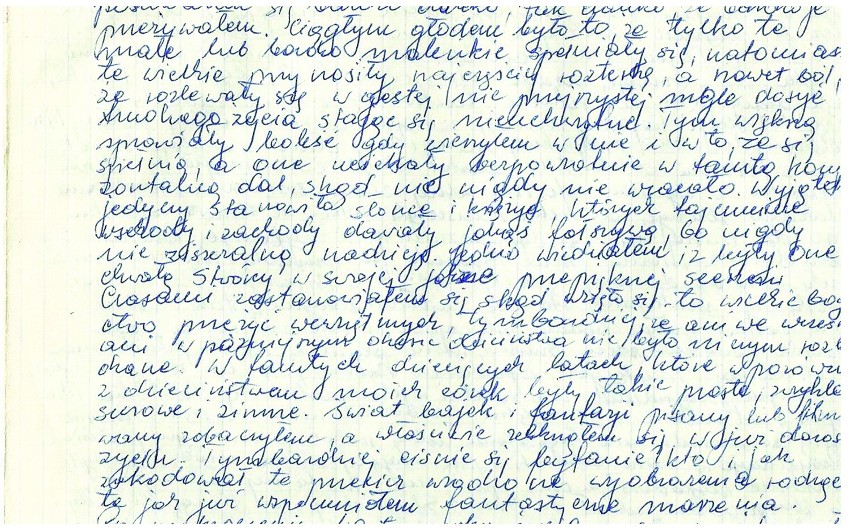 przeżywałem. Ciągłym głodem było to, że tylko te
małe lub bardzo maleńkie spełniały się, natomias
te wielkie przynosiły najczęściej rozterkę, a nawet ból,
że rozlewały się w gęstej nie przejrzystej mgle dosyć
żmudnego życia stając się nieuchwytne. Tym większą
sprawiały boleść gdy wierzyłem w nie i w to, że się
spełnią, a one uciekały bezpowrotnie w tamtą hory
zontalną dal, skąd nic nigdy nie wracało. Wyjątek
jedyny stanowiło słońce i księżyc, których tajemnicze
wschody i zachody dawały jakąś fałszywą, bo nigdy
nie ziszczalną nadzieję. Jedno wiedziałem, iż były one
chwałą Stwórcy w swojej przepięknej scenerii
Czasami zastanawiałem się skąd wzięło się to wielkie bog
ctwo przeżyć wewnętrznych, tymbardziej, że ani we wczes
ani w późniejszym okresie dzieciństwa nie było niczym rozb
chane. W tamtych dziecięcych latach, które w porówn
z dzieciństwem moich córek były takie proste, zwykłe
surowe i zimne. Świat bajek i fantazji pisany lub film
wany zobaczyłem, a właściwie zetknąłem się w już doros
życiu. Tymbardziej ciśnie się pytanie kto i jak
zakodował te przekór wyobraźnia rodząc
te jak już wspomniałem fantastyczne marzenia.